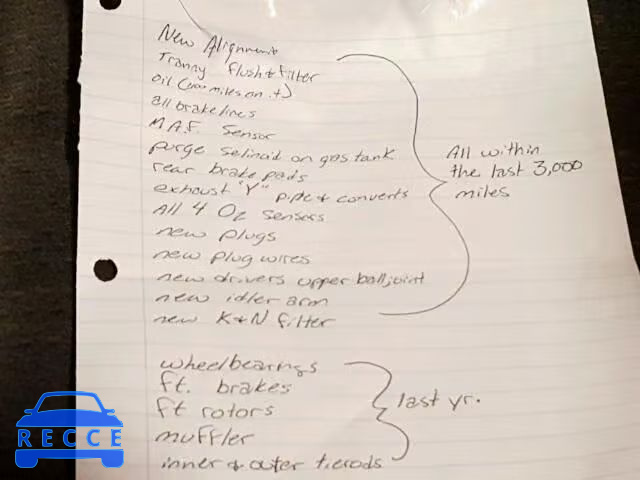 New Alignment
Tranny flush & filter
oil (   miles on it)
all brakelines
M.A.F. Sensor
purge selinoid on gas tank
rear brake pads
exhoust "Y" pipe & converts
All 4 O2 Sensors
new plugs
new plug wires
new drivers upper balljoint
new idler arm
new K&N filter
All within
the last 3,000
miles
wheelbearings
ft. brakes
ft rotors
muffler
inner & outer tierods
last yr.
RECCE